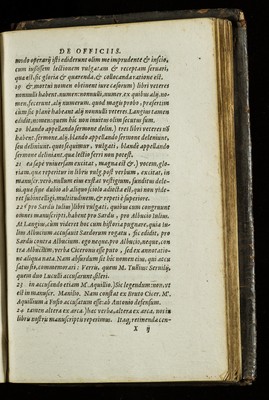 DE OFFICIIS.
modo operarij isti ediderunt olim me imprudente & inscio,
cum iussissem lectionem vulgatam & receptam seruari,
qua est. sic gloria & quærenda. & collocanda ratione est.
19 & mortui nomen obtinent iure cæsorum) libri veteres
nonnulli habent. numen: nonnulli, numen. ex quibus alij, no-
men, fecerunt. alij numerum. quod magis probo, præsertim
cum sic plane habeant alij nonnulli veteres. Langius tamen
edidit, nomen: quem hic non inuitus olim secutus sum.
20 blando appellando sermone delin.) tres libri veteres nõ
habent. sermone. alij. blando appellando sermone deleniunt,
seu deliniunt. quos sequimur. vulgati, blandè appellando
sermone deliniant. quæ lectio ferri non potest.
21 ea sæpe vniuersam excitat, magna est &) vocem, glo-
riam. quæ reperitur in libris vulg. post verbum, excitat, in
manuscr. vero, nullum eius exstat vestigium, sustuli: dele-
ui. quæ sine dubio ab aliquo sciolo adiecta est, qui non vide-
ret subintelligi, multitudinem. & repeti è superiore.
22 pro Sardu Iulius) libri vulgati, quibus cum congruunt
omnes manuscripti, habent pro Sardis, pro Albucio Iulius.
At Langius, cum videret hoc cum historia pugnare, quia Iu-
lius Albucium accusauit Sardorum rogatu, sic edidit, pro
Sardu contra Albucium. ego neque, pro Albucio, neque, con-
tra Albucium, verba Ciceronis esse puto, sed ex annotatio-
ne aliqua nata. Nam absurdum sit hic nomen eius, qui accu-
satus sit, commemorari: Verris, quem M. Tullius: Seruilij,
quem duo Luculli accusarunt, sileri.
23 in accusando etiam M'. Aquilio.) Sic legendum: non, vt
est in manuscr. Manilio. Nam constat ex Bruto Cicer. M'.
Aquilium à Fusio accusatum esse: ab Antonio defensum.
24 tamen altera ex arca.) hæc verba, altera ex arca, nec in
libris nostris manuscriptis reperimus. Itaq. retinenda cen-
X ij